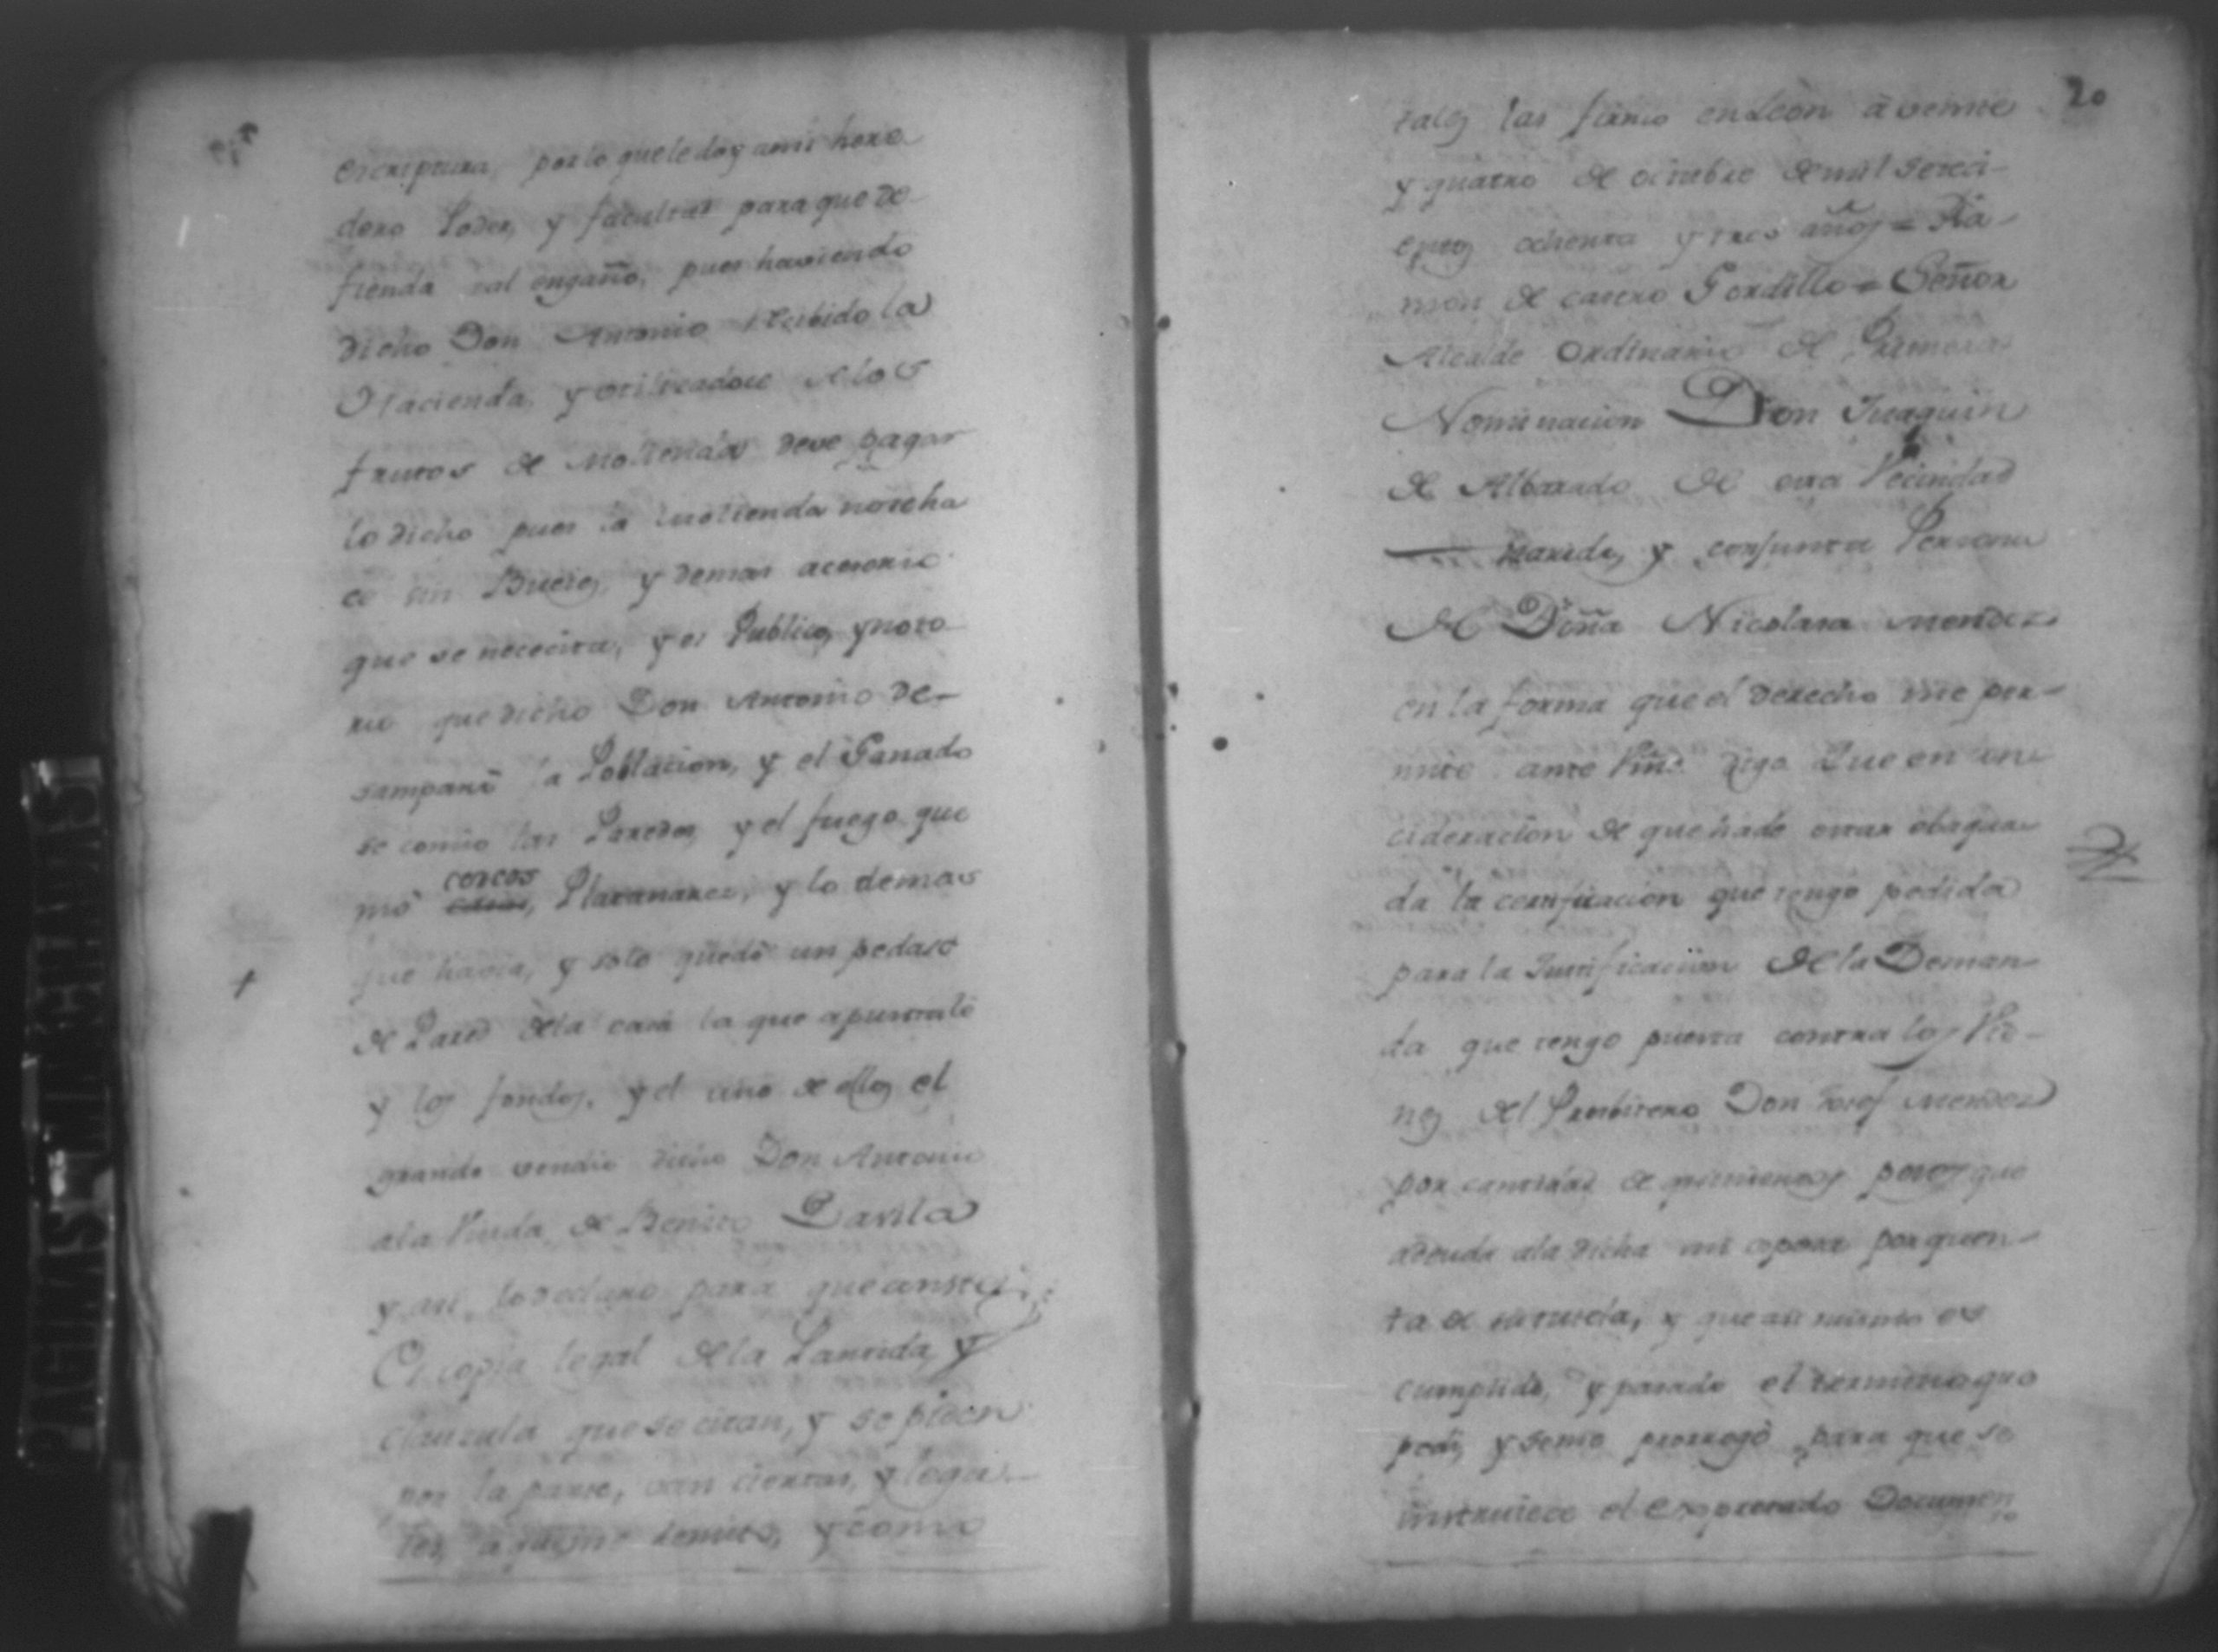 escriptura, por lo que le doy ami here
dero Poder, y facultad para que de
fienda tal engaño, pues haviendo
dicho Don Antonio recibido la
Hacienda, y utilizadose de los
frutos de Molienda deve pagar
lo dicho pues la molienda no se ha
ce sin Bueies, y demas acesorio
que se nececita, y es Publico, y noto
rio que dicho Don Antonio de-
samparò la Poblacion, y el Ganado
se comio las Paredes, y el fuego que
mò cercos, Platanares, y lo demas
que havia, y solo quedò un pedaso
de Pared de la casa la que apuntalè
y los fondos, y el uno de ellos el
grande vendio dicho Don Antonio
ala Viuda de Benito Davila
y asi lo declaro para que conste
Es copia legal de la Partida, y
clausula que se citan, y se piden
por la parte, van ciertas, y lega-
les, a que me remito, y como
20
tales las firmo en Leòn à veinte
y quatro de octubre de mil seteci-
entos ochenta y tres años = Ra-
mon de castro Gordillo = Señor
Alcalde Ordinario de Primera
Nominacion Don Juaquin
de Albarado de esta Vecindad
Marido, y conjunta Persona
de Doña Nicolasa Mendez
en la forma que el derecho me per-
mite ante Vmd. digo Que en con
cideracion de que hade estar evaqua-
da la certificacion que tengo pedida
para la Justificacion de la Deman-
da que tengo puesta contra los Vie-
nes del Presbitero Don Josef Mendez
por cantidad de quinientos pesos que
adeuda ala dicha mi esposa por quen-
ta de su tutela, y que asi mismo es
cumplido, y pasado el termino que
pedi, y seme prorrogò para que se
instruiece el expresado Documen